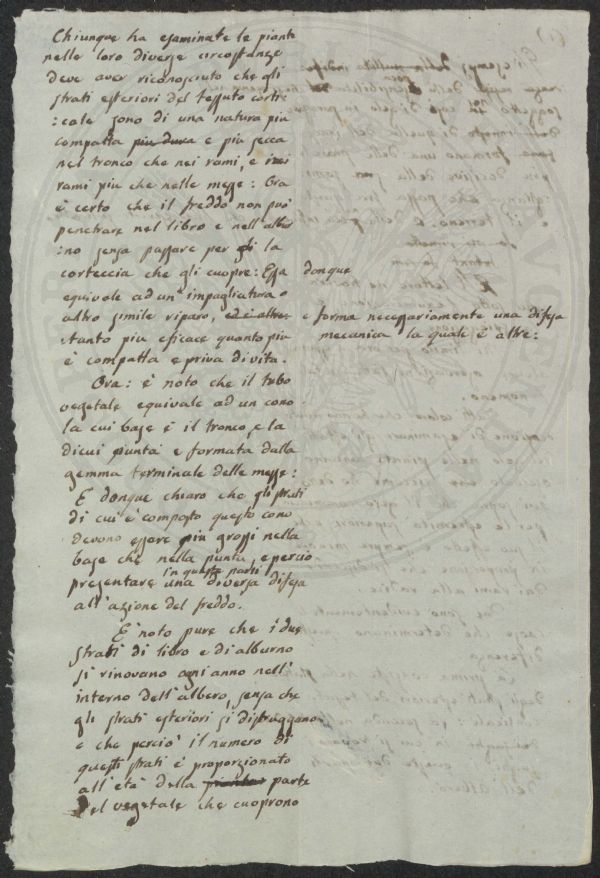 Chiunque ha esaminate le piante
nelle loro diverse circostanze
deve aver riconosciuto che gli
strati esteriori del tessuto corti:
:cale sono di una natura piu
compatta piu dura e piu secca
nel tronco che nei rami, e nei
rami piu che nelle messe: Ora
è certo che il freddo non può
penetrare nel libro e nell'albur
:no senza passare per gli la
corteccia che gli cuopre: Essa donque
equivale ad un' impagliatura o
altro simile riparo, ed è altret e forma necessariamente una difesa
:tanto piu eficace quanto piu mecanica la quale è altre:
è compatta e priva di vita.
Ora: è noto che il tubo
vegetale equivale ad un cono
la cui base è il tronco, e la
di cui punta è formata dalla
gemma terminale delle messe:
E donque chiaro che gli strati
di cui è composto questo cono
devono essere piu grossi nella
base che nella punta, e perciò
in queste parti
presentare una diversa difesa
all'azione del freddo.
E noto pure che i due
strati di libro e di alburno
si rinovano ogni anno nell'
interno dell'albero, senza che
gli strati esteriori si distruggano
e che perciò il numero di
questi strati è proporzionato
all'età della pianta parte
del vegetale che cuoprono